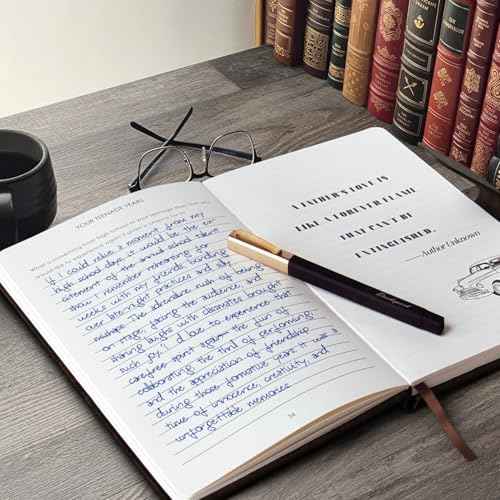 YOUR TEENAGE YEARS
If I could relive a moment from my
high school days, it would be the
excitement of our annual school talent
show. I remember rehearsing for
weeks with my friends, bonding
over late-night practices and silly
mishaps. The adrenaline rush of being
on stage, facing the audience, and
sharing laughs with classmates brought
such joy. I'd love to experience that
carefree spirit again, the fun of
collaborating, the thrill of performing,
and the appreciation of friendship
during those formative years. It was a
time of innocence, creativity, and
unforgettable memories.
A FATHER'S LOVE IS
LIKE A FOREVER FLAME
THAT CAN'T BE
EXTINGUISHED.
—Author Unknown